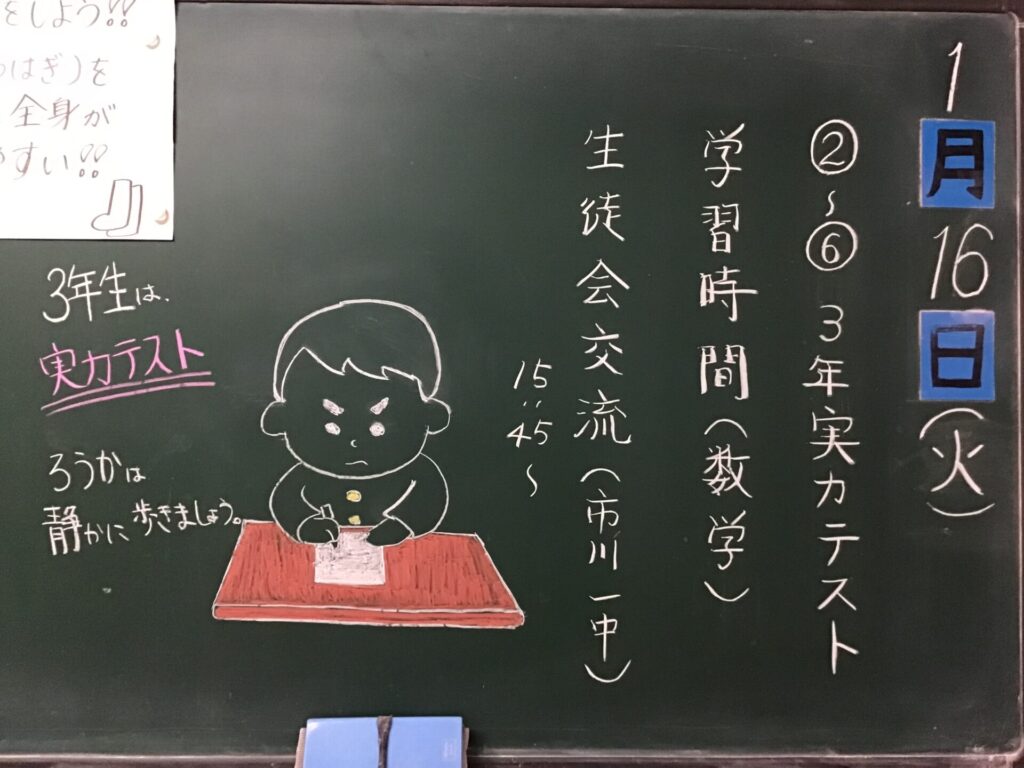 1月16日(火)
②～⑥ 3年実力テスト
学習時間(数学)
生徒会交流(市川一中)
15:45～
をしよう!!
はぎ)を
全身が
すい!!
3年生は、
実力テスト
ろうかは
静かに歩きましょう。